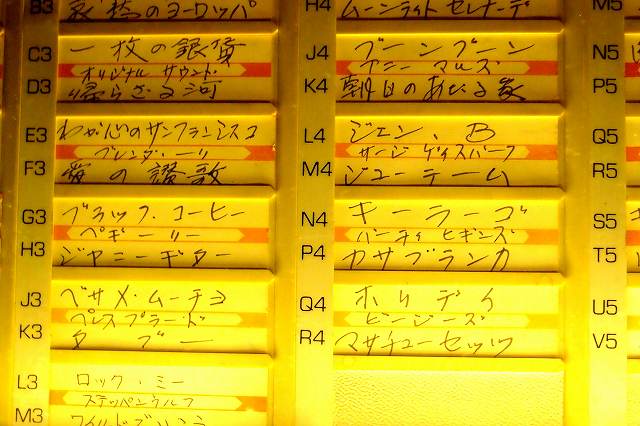 B3
哀愁のヨーロッパ
C3
一枚の銀貨
オリジナル サウンド.
D3
帰らざる河
E3
わが心のサンフランシスコ
ブレンダ・リー
F3
愛の讃歌
G3
ブラック.コーヒー
ペギーリー
H3
ジャニーギター
J3
ベサメ・ムーチョ
ペレスプラード
K3
タブー
L3
ロック.ミー
ステッペンウルフ
M3
H4
ムーンライト セレナーデ
J4
ブーンブーン
K4
朝日のあたる家
L4
ジェン、B
サージ ゲイスバーフ
M4
ジューテーム
N4
キーラーゴ
バーティ ヒギンズ
P4
カサブランカ
Q4
ホリデイ
ビージーズ
R4
マサチューセッツ
M5
N5
P5
Q5
R5
S5
T5
U5
V5